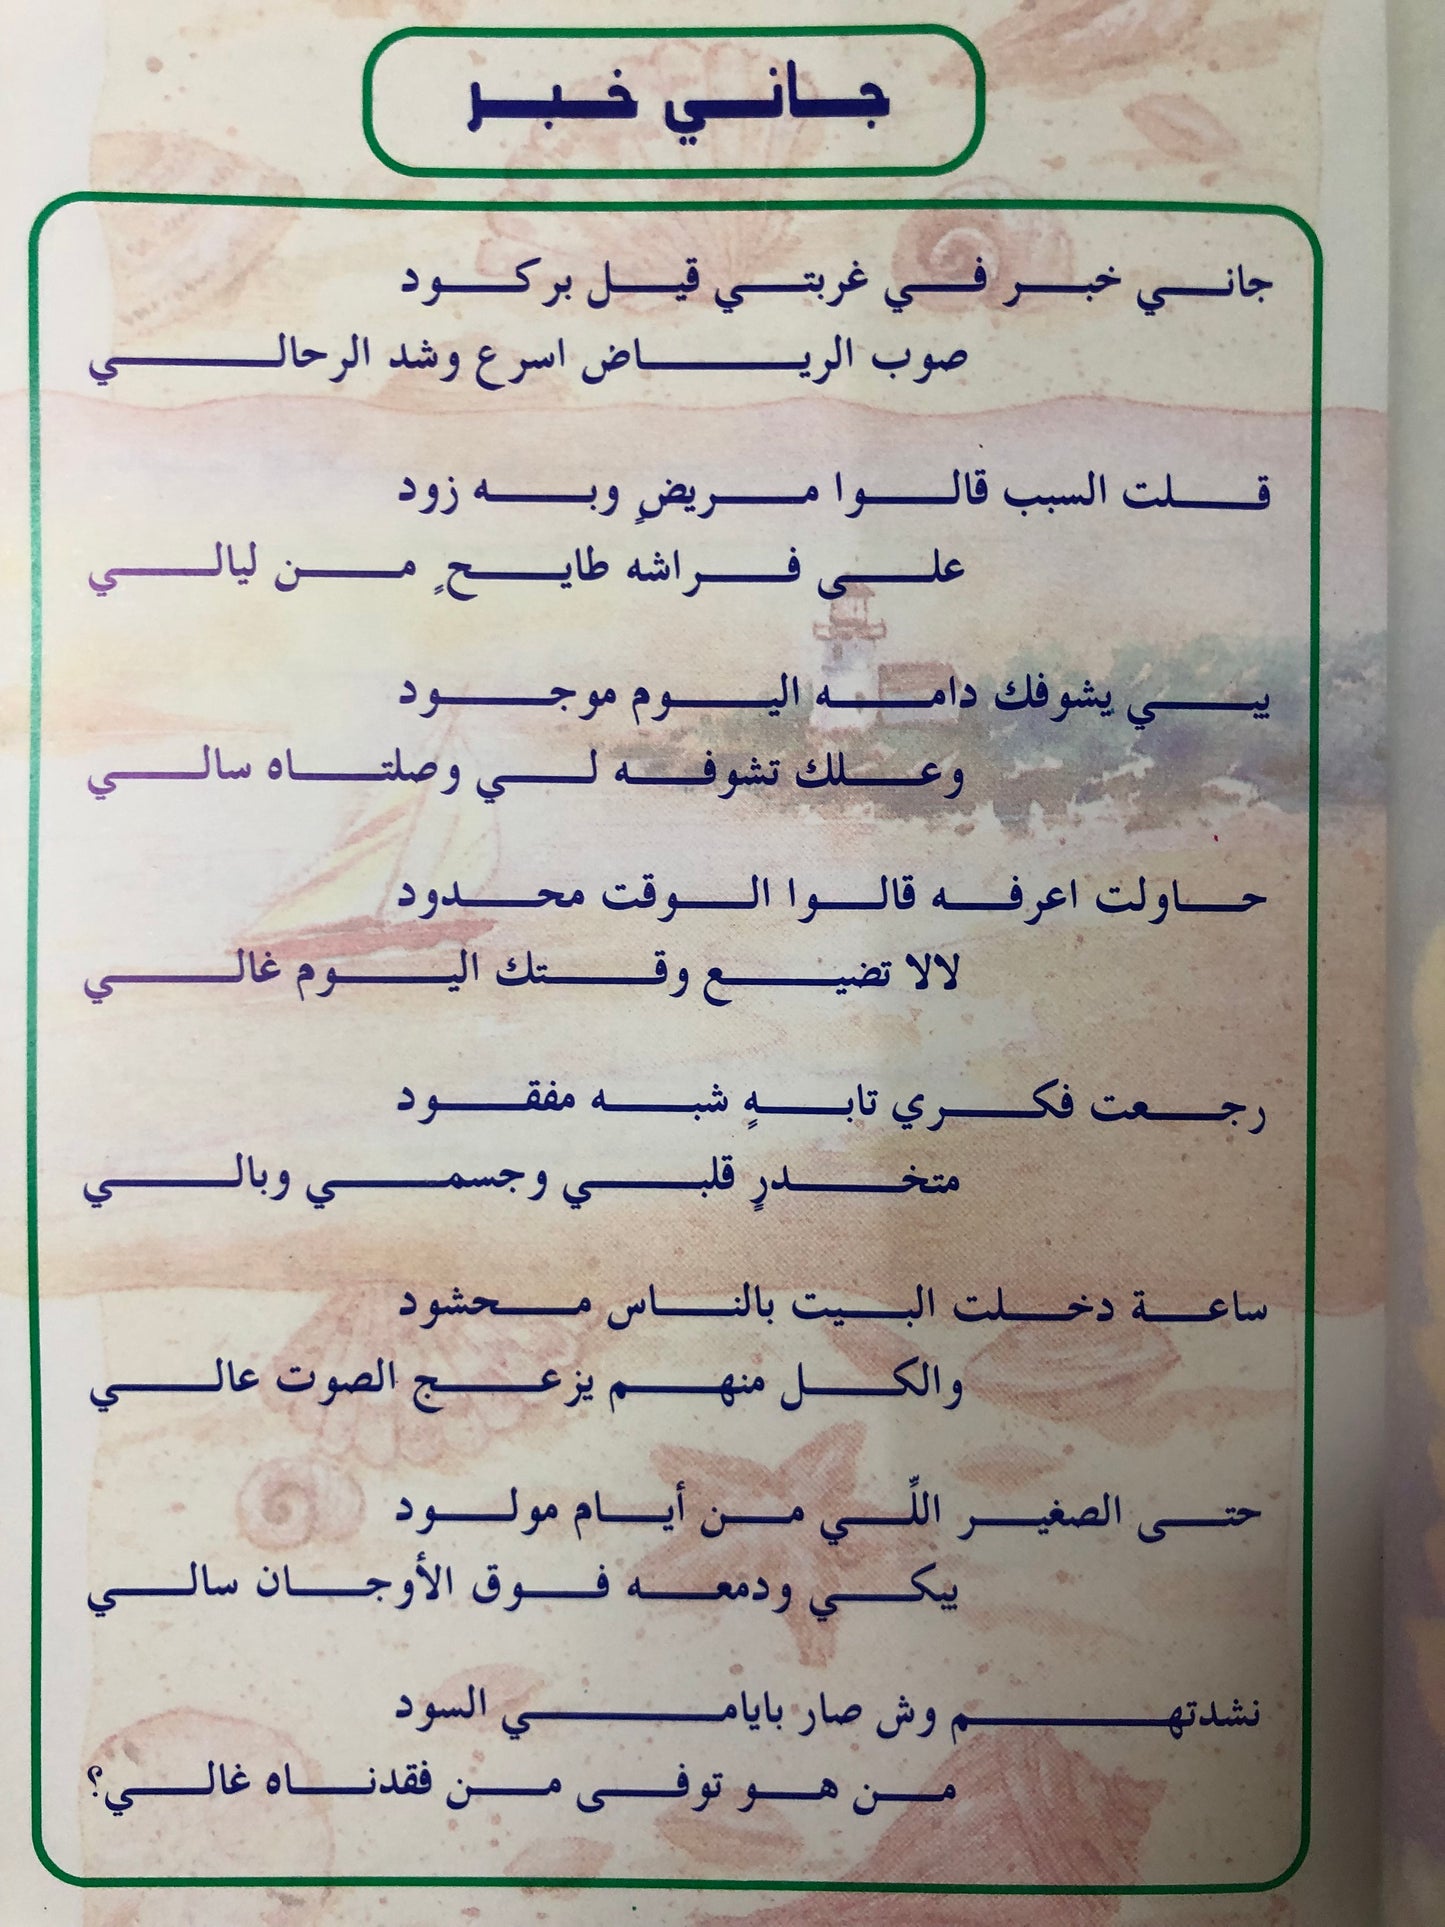 جاني خبر
جاني خبر في غربتي قيل بركود
صوب الرياض اسرع وشد الرحالي
قلت السبب قالوا مريضٍ وبه زود
على فراشه طايحٍ من ليالي
يبي يشوفك دامه اليوم موجود
وعلك تشوفه لي وصلتاه سالي
حاولت اعرفه قالوا الوقت محدود
لالا تضيع وقتك اليوم غالي
رجعت فكري تابهٍ شبه مفقود
متخدرٍ قلبي وجسمي وبالي
ساعة دخلت البيت بالناس محشود
والكل منهم يزعج الصوت عالي
حتى الصغير اللِّي من أيام مولود
يبكي ودمعه فوق الأوجان سالي
نشدتهم وش صار بايامي السود
من هو توفى من فقدناه غالي؟